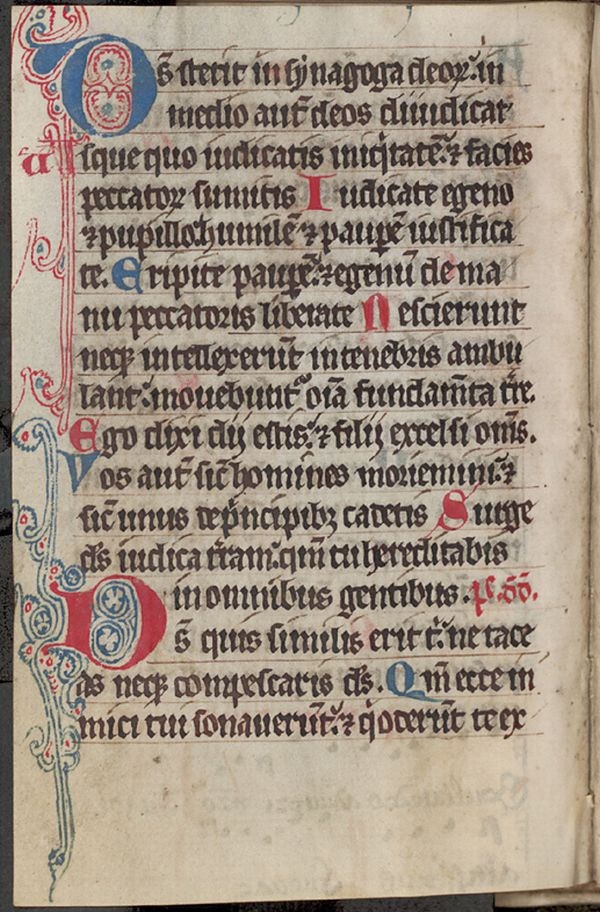 Ds̄ stetit in synagoga deoꝝ: in
medio aut̄ deos diiudicat
Usque quo iudicatis iniq̇tatē: ⁊ facies
peccatoꝝ sumitis Iudicate egeno
⁊ pupillo: humilē ⁊ paupē iustifica
te. Eripite paupē: ⁊ egenū de ma
nu peccatoris liberate Nescierunt
neqꝫ intellexerūt in tenebris ambu
lant: mouebunt᷑ om̄ia fundam̄ta t̄re.
Ego dixi dij estis: ⁊ filij excelsi om̄s.
Vos aut̄ sic̄ homines moriemini: ⁊
sic̄ unus de p̄ncipibꝫ cadetis Surge
ds̄ iudica t̄ram: qm̄ tu hereditabis
in omnibus gentibus. pͤ. dd̄.
Ds̄ quis similis erit t̄: ne tace
as neqꝫ compescaris ds̄. Qm̄ ecce in
mici tui sonauerūt: ⁊ q̇ oderūt te ex